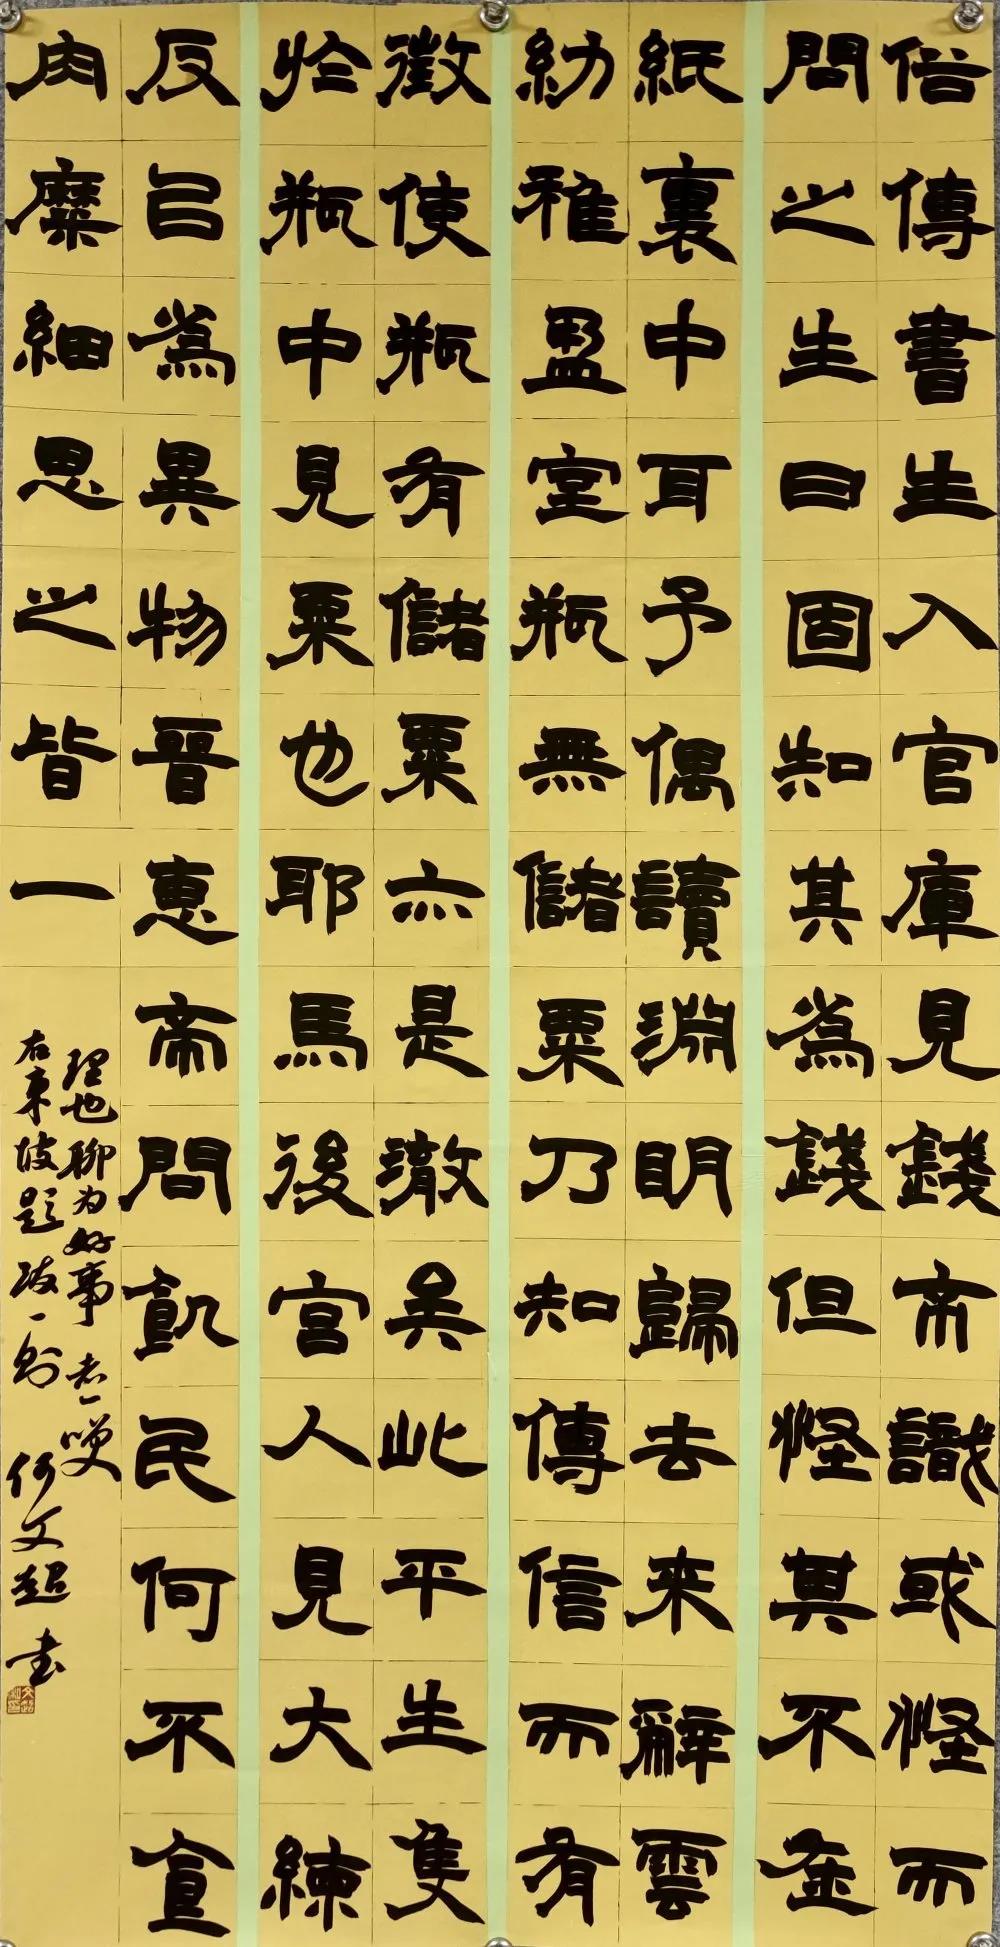 俗傳書生入官庫見錢帝識或怪而
問之生曰固知其為錢但怪其不在
紙裏中耳予偶讀淵明歸去来辭雲
幼稚盈室瓶無儲粟乃知傳信而有
徵使瓶有儲粟亦是澈吴此平生隻
於瓶中見粟也耶馬後宮人見大練
反以為異物晉惠帝問飢民何不食
肉糜細思之皆一
理也聊为好事者一笑
右東坡題跋一则 何文超書